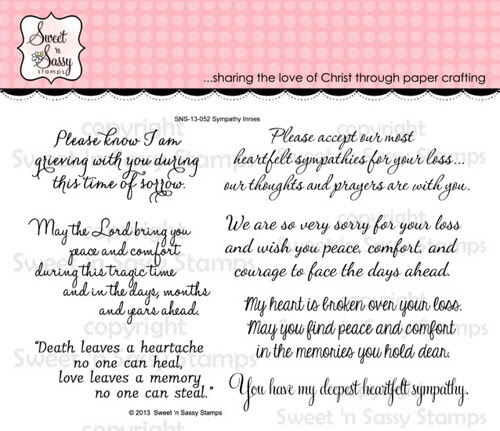 Sweet
'n
Sassy
stamps
...sharing the love of Christ through paper crafting
SNS-13-052 Sympathy Innies
Please know I am
grieving with you during
this time of sorrow.
Please accept our most
heartfelt sympathies for your loss...
our thoughts and prayers are with you.
May the Lord bring you
peace and comfort
during this tragic time
and in the days, months
and years ahead.
We are so very sorry for your loss
and wish you peace, comfort, and
courage to face the days ahead.
My heart is broken over your loss.
May you find peace and comfort
in the memories you hold dear.
"Death leaves a heartache
no one can heal,
love leaves a memory
no one can steal."
You have my deepest heartfelt sympathy.
© 2013 Sweet 'n Sassy Stamps
copyright
Sweet 'n Sassy Stamps
copyright
Sweet 'n Sassy Stamps
copyright
Sweet 'n Sassy Stamps
copyright
Sweet 'n Sassy Stamps
copyright
Sweet 'n Sassy Stamps
copyright
Sweet 'n Sassy Stamps